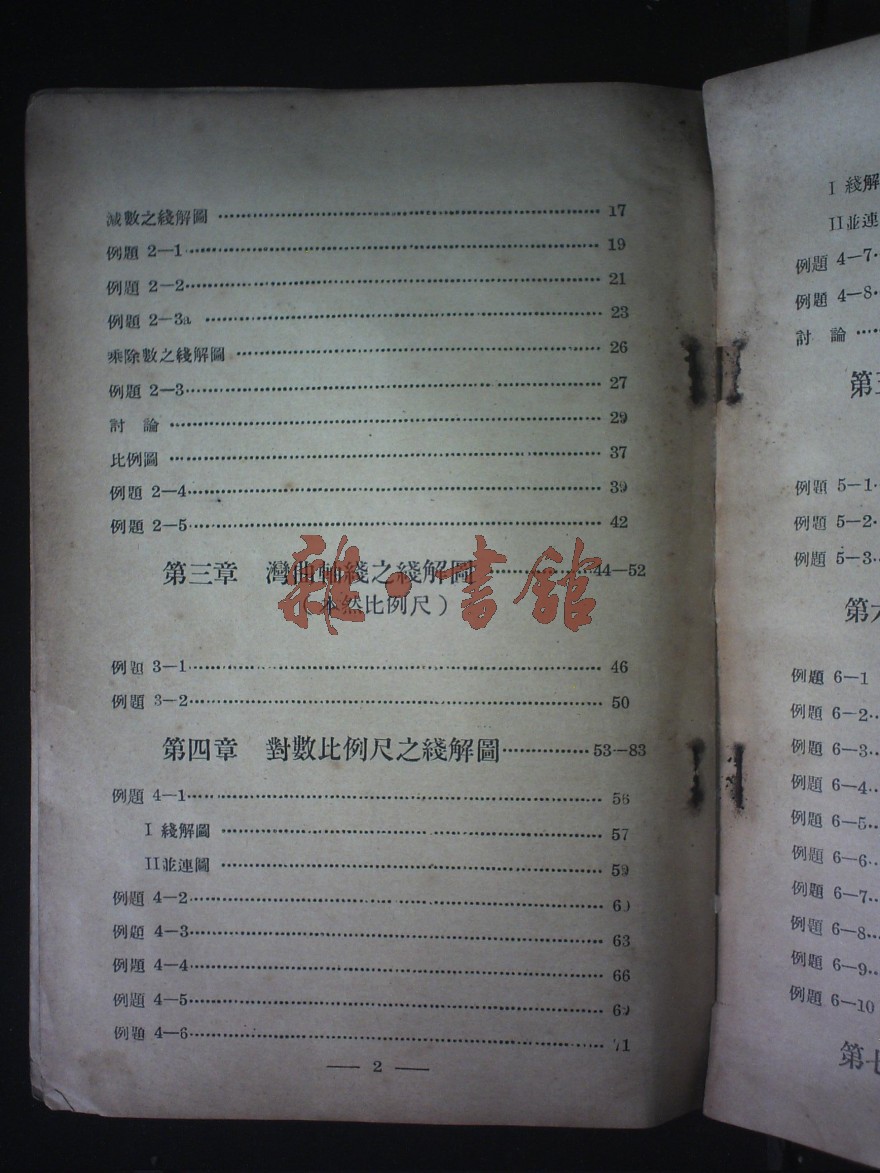 減數之綫解圖 ………… 17
例題 2—1 ………… 19
例題 2—2 ………… 21
例題 2—3a ………… 23
乘除數之綫解圖 ………… 26
例題 2—3 ………… 27
討 論 ………… 29
比例圖 ………… 37
例題 2—4 ………… 39
例題 2—5 ………… 42
第三章 灣曲軸綫之綫解圖 ………… 44—52
(本然比例尺)
雜·書館
例題 3—1 ………… 46
例題 3—2 ………… 50
第四章 對數比例尺之綫解圖 ………… 53—83
例題 4—1 ………… 56
I 綫解圖 ………… 57
II並連圖 ………… 59
例題 4—2 ………… 6
例題 4—3 ………… 63
例題 4—4 ………… 66
例題 4—5 ………… 69
例題 4—6 ………… 71
— 2 —
I 綫解
II並連
例題 4—7
例題 4—8
討 論
第
例題 5—1
例題 5—2
例題 5—3
第
例題 6—1
例題 6—2
例題 6—3
例題 6—4
例題 6—5
例題 6—6
例題 6—7
例題 6—8
例題 6—9
例題 6—10
第